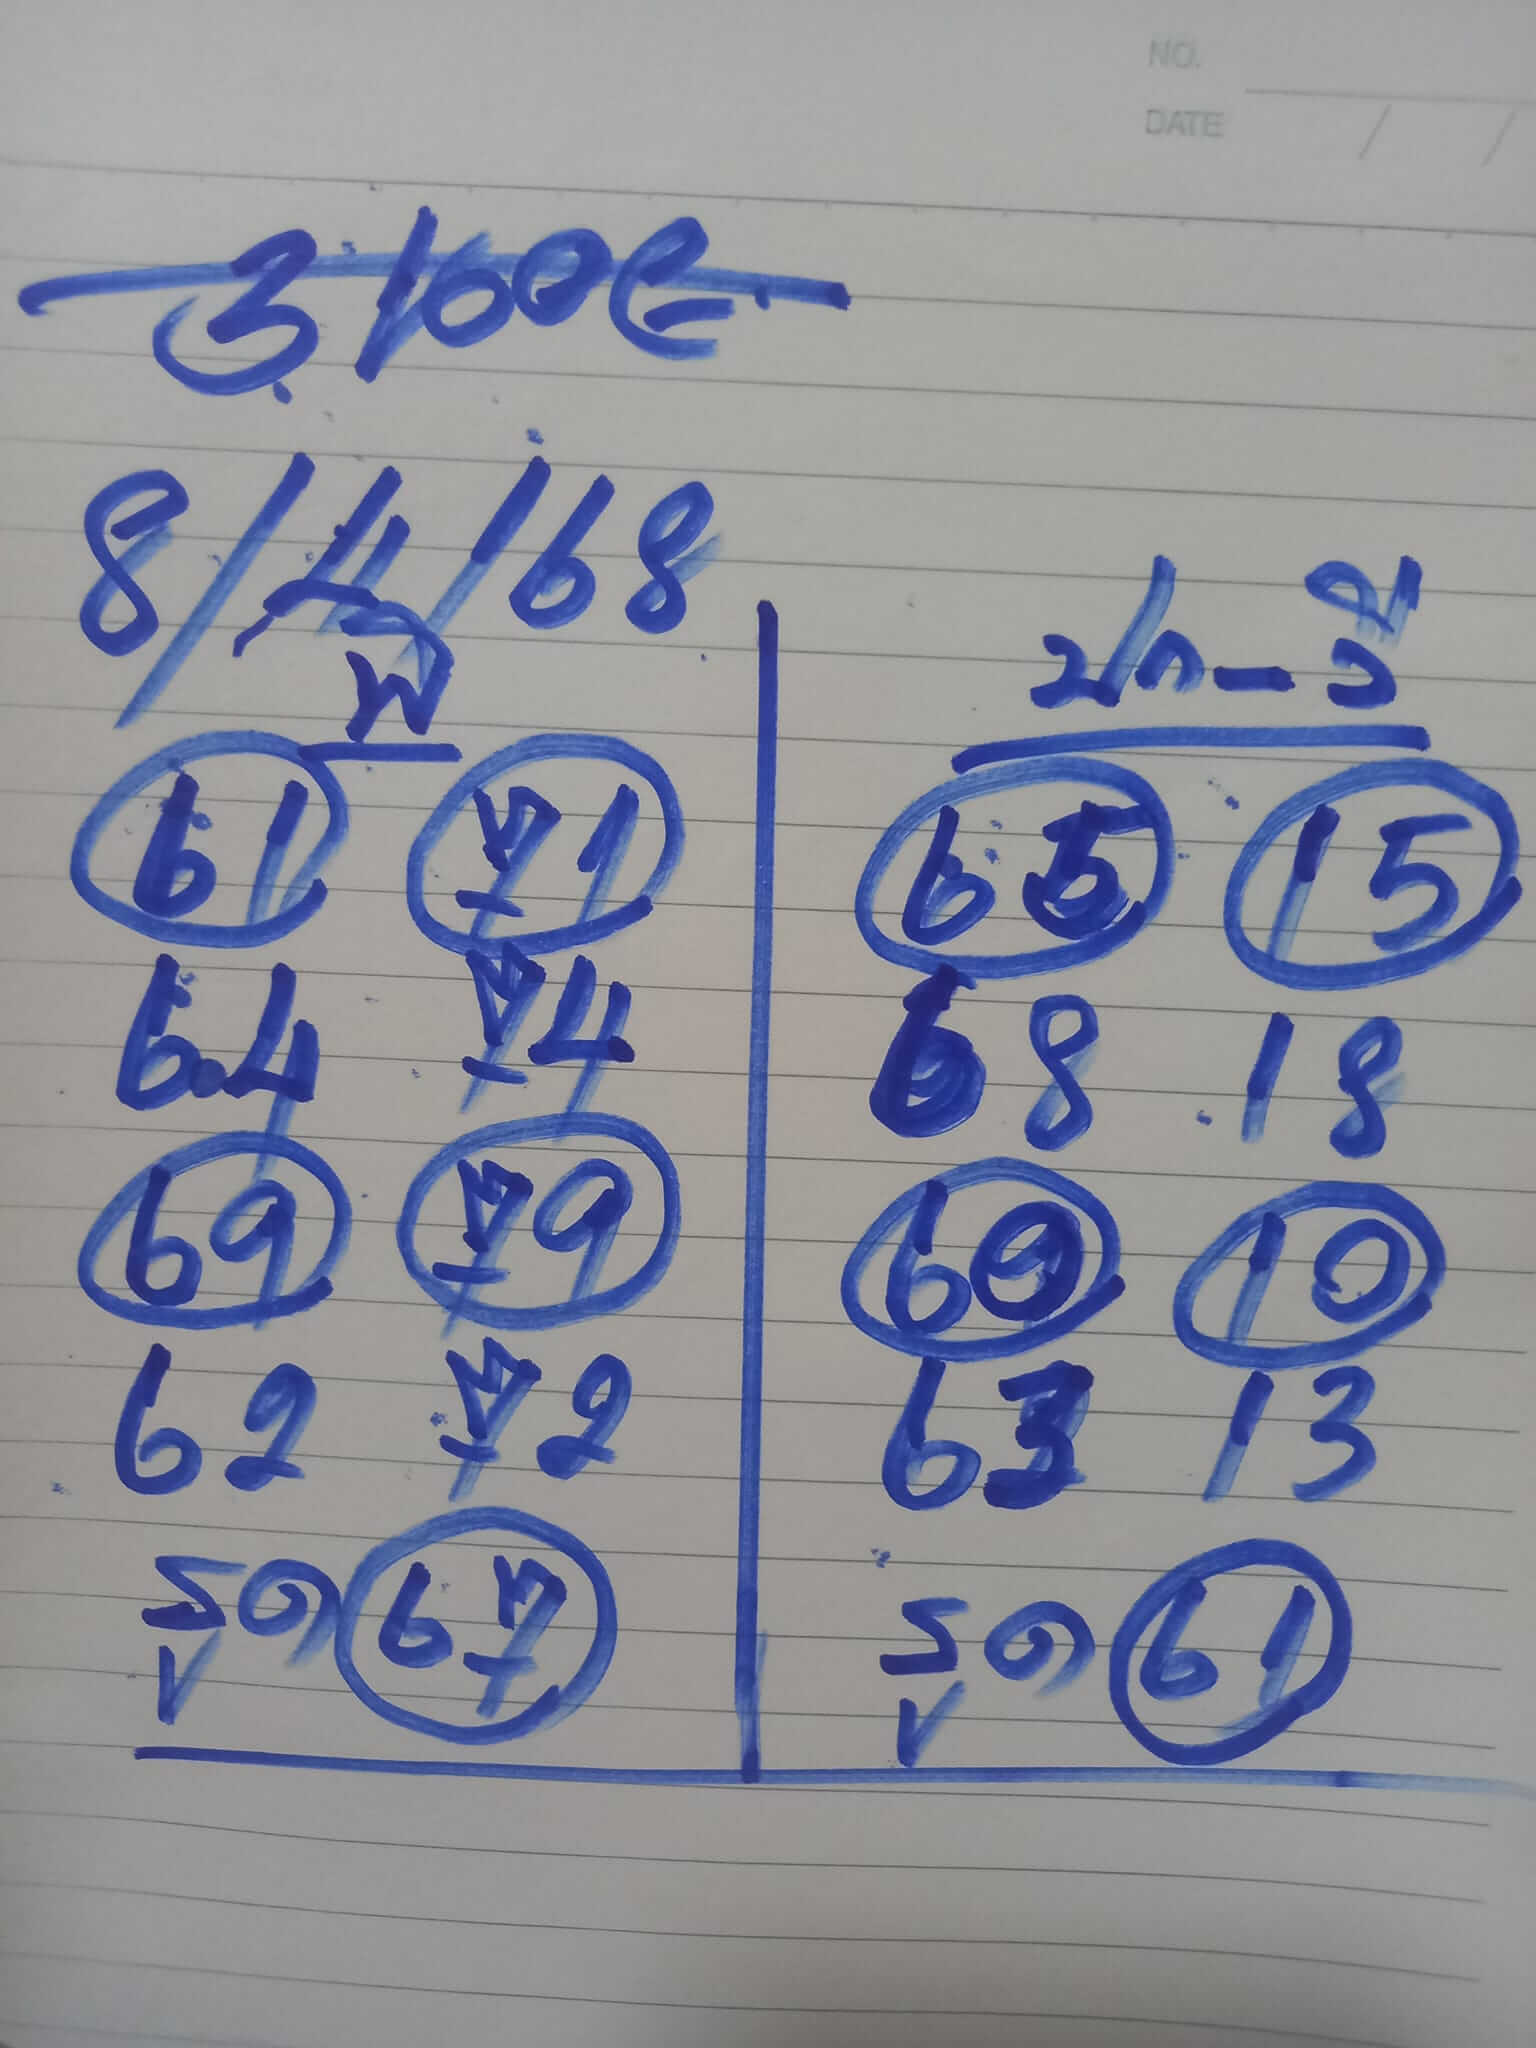 NO.
DATE / /
8/4/68
พิ
61 71
6.4 74
69 79
62 72
รูด 67
ปก-วี
65 15
68 18
60 10
63 13
รูด 61